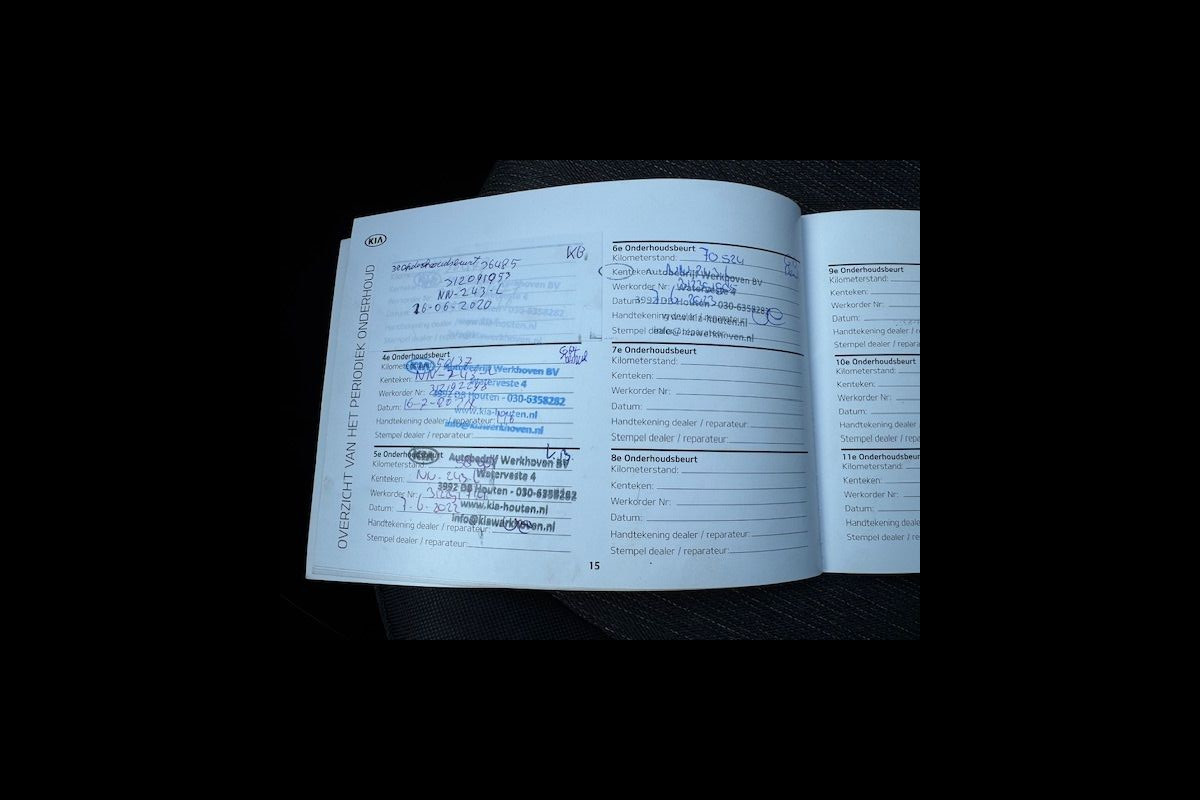 KIA
OVERZICHT VAN HET PERIODIEK ONDERHOUD
KB
3e Onderhoudsbeurt 36485
312091953
NN-243-L
26-06-2020
4e Onderhoudsbeurt
Kilometerstand:
Kenteken: NN-243-L
Werkorder Nr:
Datum: 16-7-2021
Handtekening dealer / reparateur:
Stempel dealer / reparateur:
KIA Autobedrijf Werkhoven BV
Waterveste 4
3992 DB Houten - 030-6358282
www.kia-houten.nl
info@kiawerkhoven.nl
5e Onderhoudsbeurt
Kilometerstand:
Kenteken: NN-243-L
Werkorder Nr:
Datum: 7-6-2022
Handtekening dealer / reparateur:
Stempel dealer / reparateur:
KIA Autobedrijf Werkhoven BV
Waterveste 4
3992 DB Houten - 030-6358282
www.kia-houten.nl
info@kiawerkhoven.nl
6e Onderhoudsbeurt
Kilometerstand: 70.524
Kenteken:
Werkorder Nr:
Datum:
Handtekening dealer / reparateur:
Stempel dealer / reparateur:
Autobedrijf Werkhoven BV
Waterveste 4
3992 DB Houten - 030-6358282
www.kia-houten.nl
info@kiawerkhoven.nl
7e Onderhoudsbeurt
Kilometerstand:
Kenteken:
Werkorder Nr:
Datum:
Handtekening dealer / reparateur:
Stempel dealer / reparateur:
8e Onderhoudsbeurt
Kilometerstand:
Kenteken:
Werkorder Nr:
Datum:
Handtekening dealer / reparateur:
Stempel dealer / reparateur:
15
9e Onderhoudsbeurt
Kilometerstand:
Kenteken:
Werkorder Nr:
Datum:
Handtekening dealer /
Stempel dealer /
10e Onderhoudsbeurt
Kilometerstand:
Kenteken:
Werkorder Nr:
Datum:
Handtekening dealer
Stempel dealer /
11e Onderhoudsbeurt
Kilometerstand:
Kenteken:
Werkorder Nr:
Datum:
Handtekening dealer
Stempel dealer /